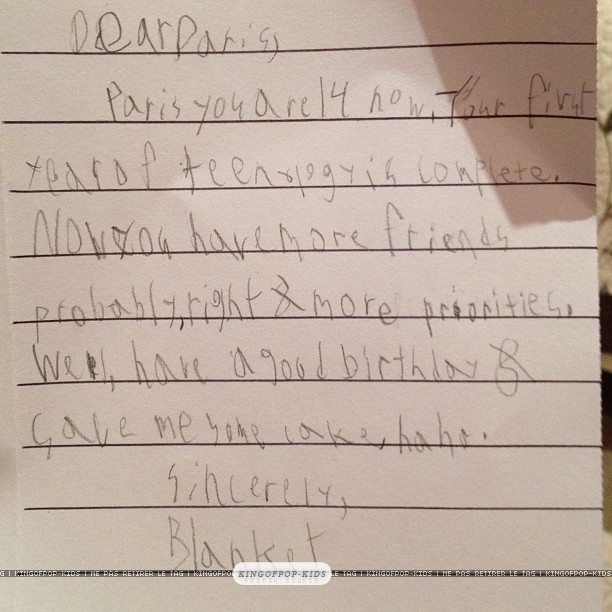 Dear Paris,
Paris you are 14 now. Your first
year of teenology is complete.
Now you have more friends
probably, right & more priorities.
Well, have a good birthday &
save me some cake, haha.
Sincerely,
Blanket
KINGOFPOP-KIDS | NE PAS RETIRER LE TAG | KINGOFPOP-KIDS | NE PAS RETIRER LE TAG | KINGOFPOP-KIDS